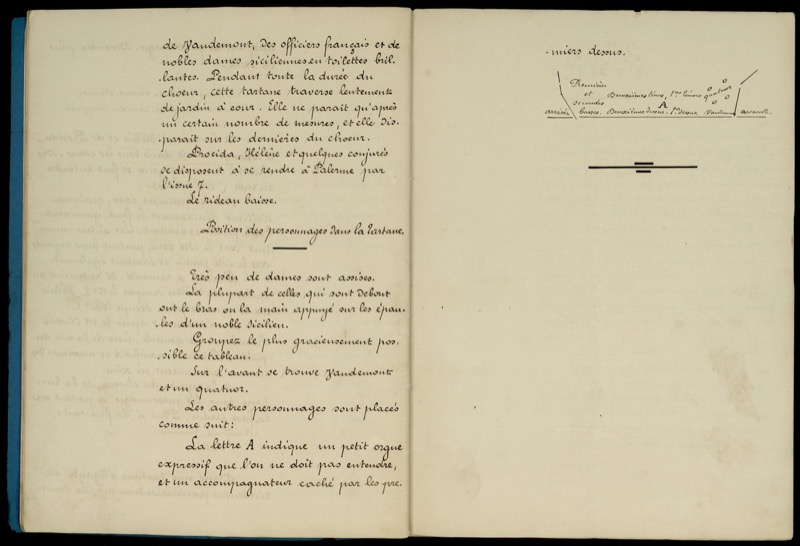 de Vaudemont, des officiers français et de
nobles dames siciliennes en toilettes bril.
.lantes. Pendant toute la durée du
choeur, cette tartane traverse lentement
de jardin à cour. Elle ne parait qu'après
un certain nombre de mesures, et elle dis.
.parait sur les dernières du choeur.
Procida, Hélène et quelques conjurés
se disposent à se rendre à Palerme par
l'issue 7.
Le rideau baisse.
Position des personnages dans la tartane.
Très peu de dames sont assises.
La plupart de celles qui sont debout
ont le bras ou la main appuyé sur les épau.
.les d'un noble sicilien.
Groupez le plus gracieusement pos.
.sible ce tableau.
Sur l'avant se trouve Vaudemont
et un quatuor.
Les autres personnages sont placés
comme suit:
La lettre A indique un petit orgue
expressif que l'on ne doit pas entendre,
et un accompagnateur caché par les pre.
.miers dessus.
Premières
et
secondes
basses.
Deuxièmes ténors, 1ers ténors quatuor
A
arrière Deuxièmes dessus. 1ers dessus Vaudemont avant.